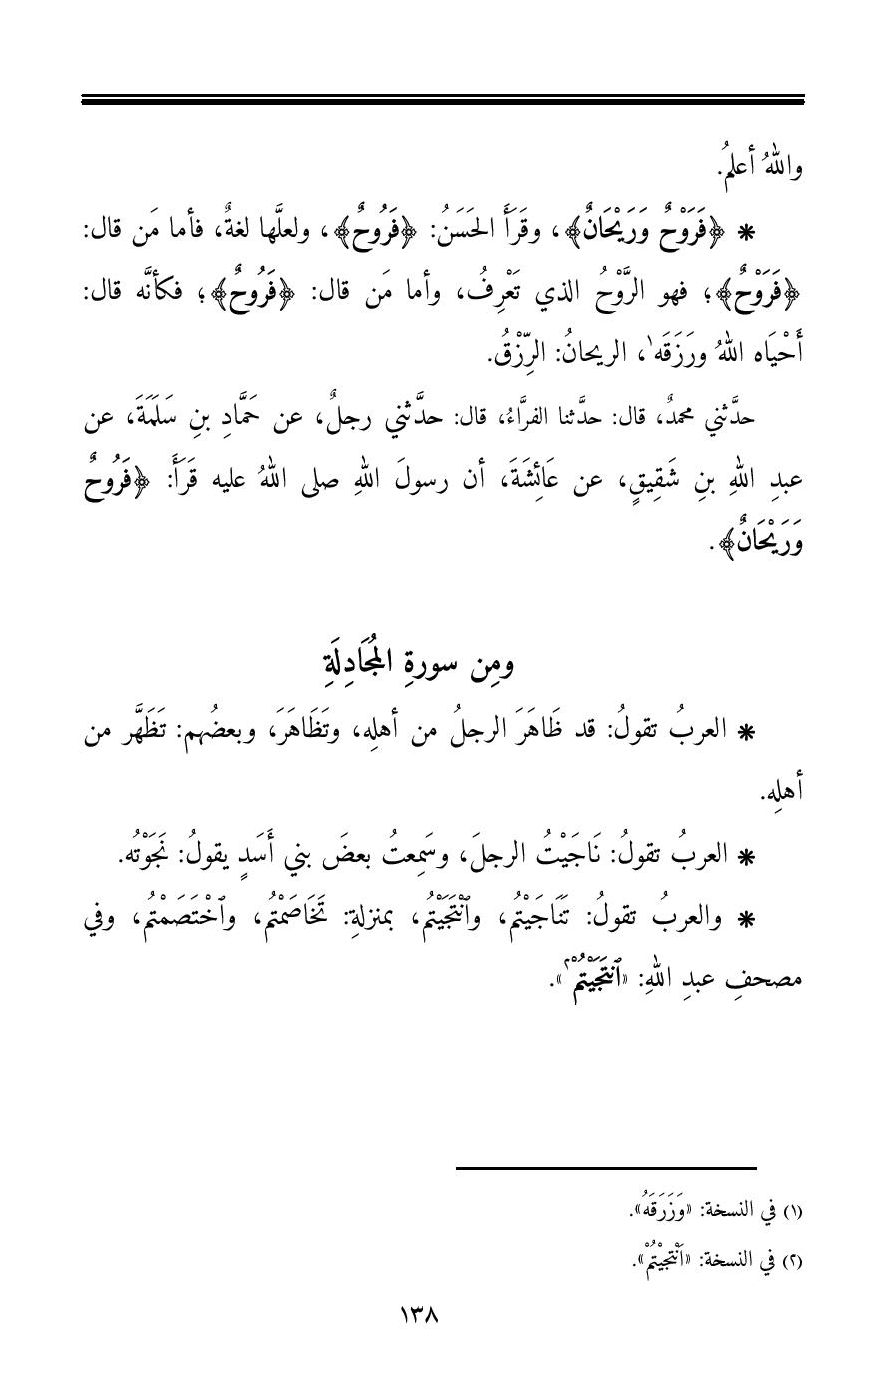 واللهُ أعلمُ.
* ﴿فَرَوْحٌ وَرَيْحَانٌ﴾، وقَرَأَ الحَسَنُ: ﴿فَرُوحٌ﴾، ولعلَّها لغةٌ، فأما مَن قال:
﴿فَرَوْحٌ﴾؛ فهو الرَّوْحُ الذي تَعْرِفُ، وأما مَن قال: ﴿فَرُوحٌ﴾؛ فكأنَّه قال:
أَحْيَاه اللهُ ورَزَقَه١، الريحانُ: الرِّزْقُ.
حدَّثني محمدٌ، قال: حدَّثنا الفرَّاءُ، قال: حدَّثني رجلٌ، عن حَمَّادِ بنِ سَلَمَةَ، عن
عبدِ اللهِ بنِ شَقِيقٍ، عن عَائِشَةَ، أن رسولَ اللهِ صلى اللهُ عليه قَرَأَ: ﴿فَرُوحٌ
وَرَيْحَانٌ﴾.
ومِن سورةِ المُجَادِلَةِ
* العربُ تقولُ: قد ظَاهَرَ الرجلُ من أهلِه، وتَظَاهَرَ، وبعضُهم: تَظَهَّر من
أهلِه.
* العربُ تقولُ: نَاجَيْتُ الرجلَ، وسَمِعتُ بعضَ بني أَسَدٍ يقولُ: نَجَوْتُه.
* والعربُ تقولُ: تَنَاجَيْتُم، وٱنْتَجَيْتُم، بمنزلةِ: تَخَاصَمْتُم، وٱخْتَصَمْتُم، وفي
مصحفِ عبدِ اللهِ: «ٱنتَجَيْتُمْ٢».
(١) في النسخة: «وَزَرَقَهُ».
(٢) في النسخة: «اَنْتجَيْتُمْ».
١٣٨